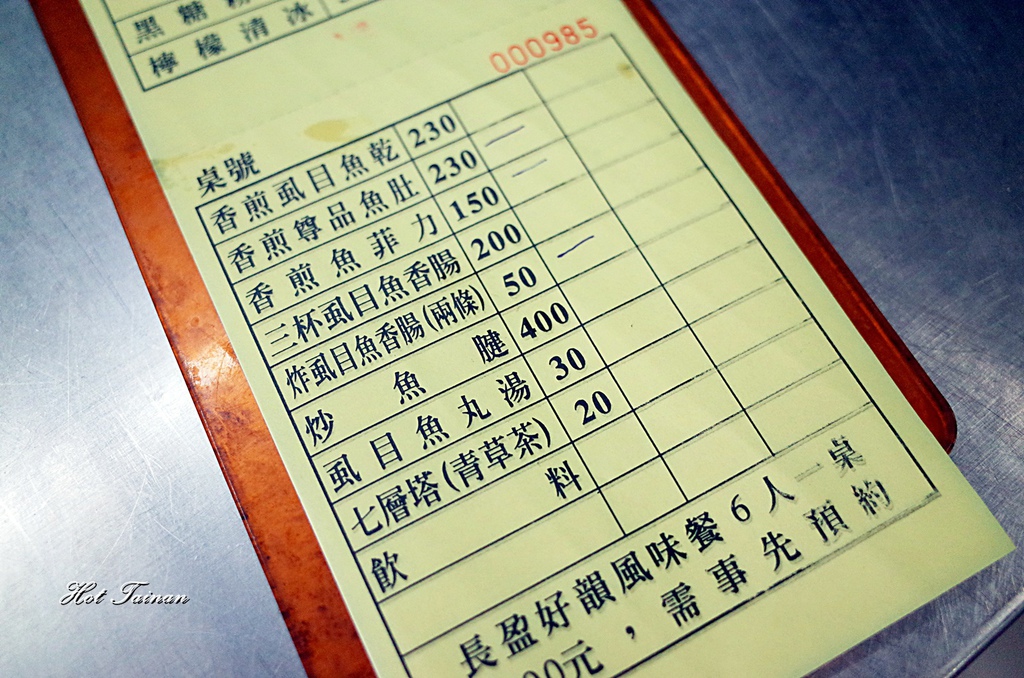 黑糖
檸檬清冰
000985
桌號
香煎虱目魚乾 230
香煎尊品魚肚 230
香煎魚菲力 150
三杯虱目魚香腸 200
炸虱目魚香腸(兩條) 50
炒魚腱 400
虱目魚丸湯 30
七層塔(青草茶) 20
飲料
長盈好韻風味餐6人一桌
00元,需事先預約
Hot Tainan